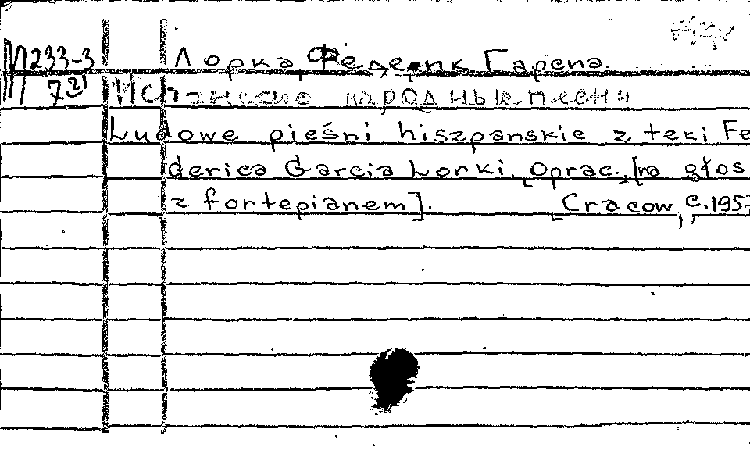 М 233-3 Лорка, Федерик Гарсиа.
72) Испанские народные песни
Ludowe pieśni hiszpanskie z teki Fe
derica Garcia Lorki. Oprac. [na głos
z fortepianem]. Cracow, c.195